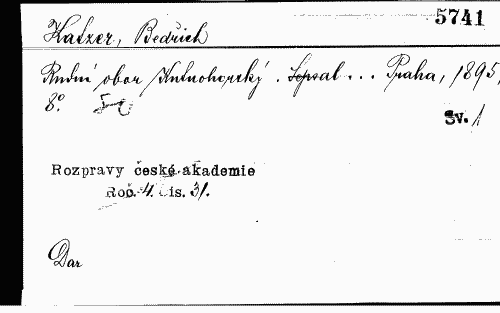 5741
Katzer, Bedřich
Rudní obor Kutnohorský. Sepsal ... Praha, 1895,
8°.
Sv. 1
Rozpravy české akademie
Roč. 4. čis. 31.
Dar